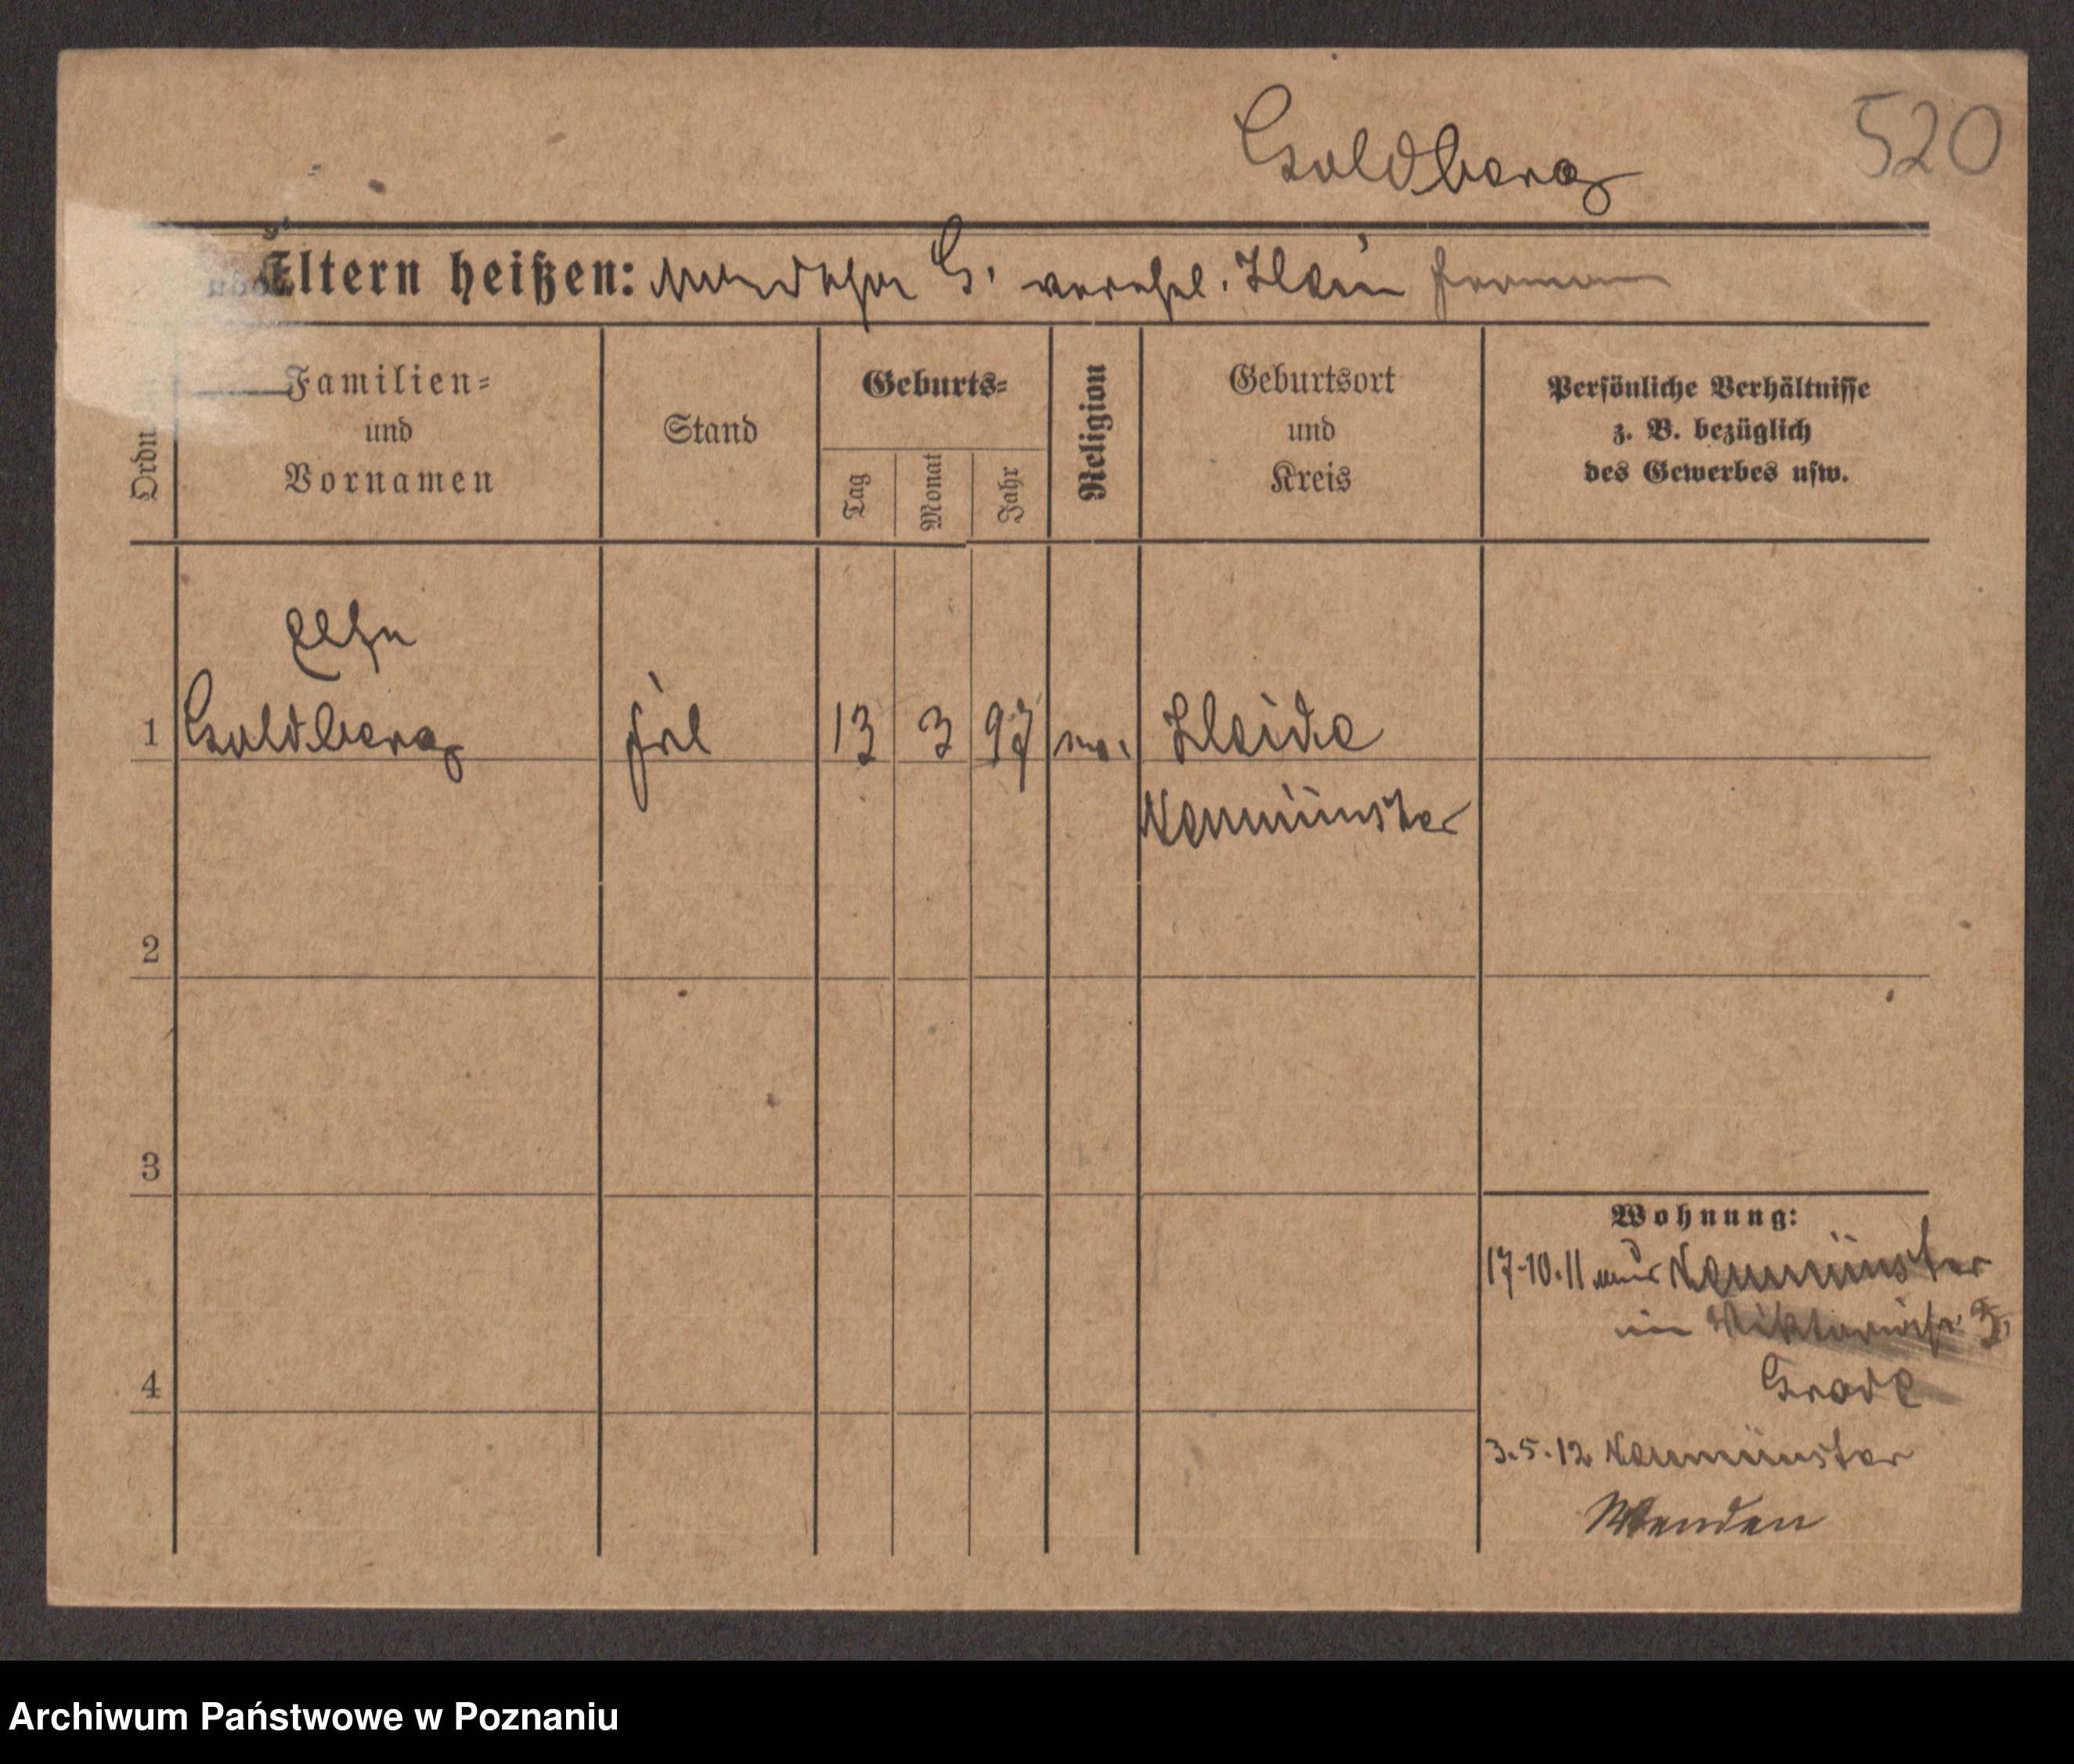 Goldberg 520
Eltern heißen: G. verehel.
Ordn
Familien=
und
Vornamen
Stand
Geburts=
Tag
Monat
Jahr
Religion
Geburtsort
und
Kreis
Persönliche Verhältnisse
z. B. bezüglich
des Gewerbes usw.
1 Goldberg 13 3 97 Heide
Neumünster
2
3
Wohnung:
17.10.11 Neumünster
in Viktoriastr.
4
3.5.12 Neumünster
Wenden
Archiwum Państwowe w Poznaniu